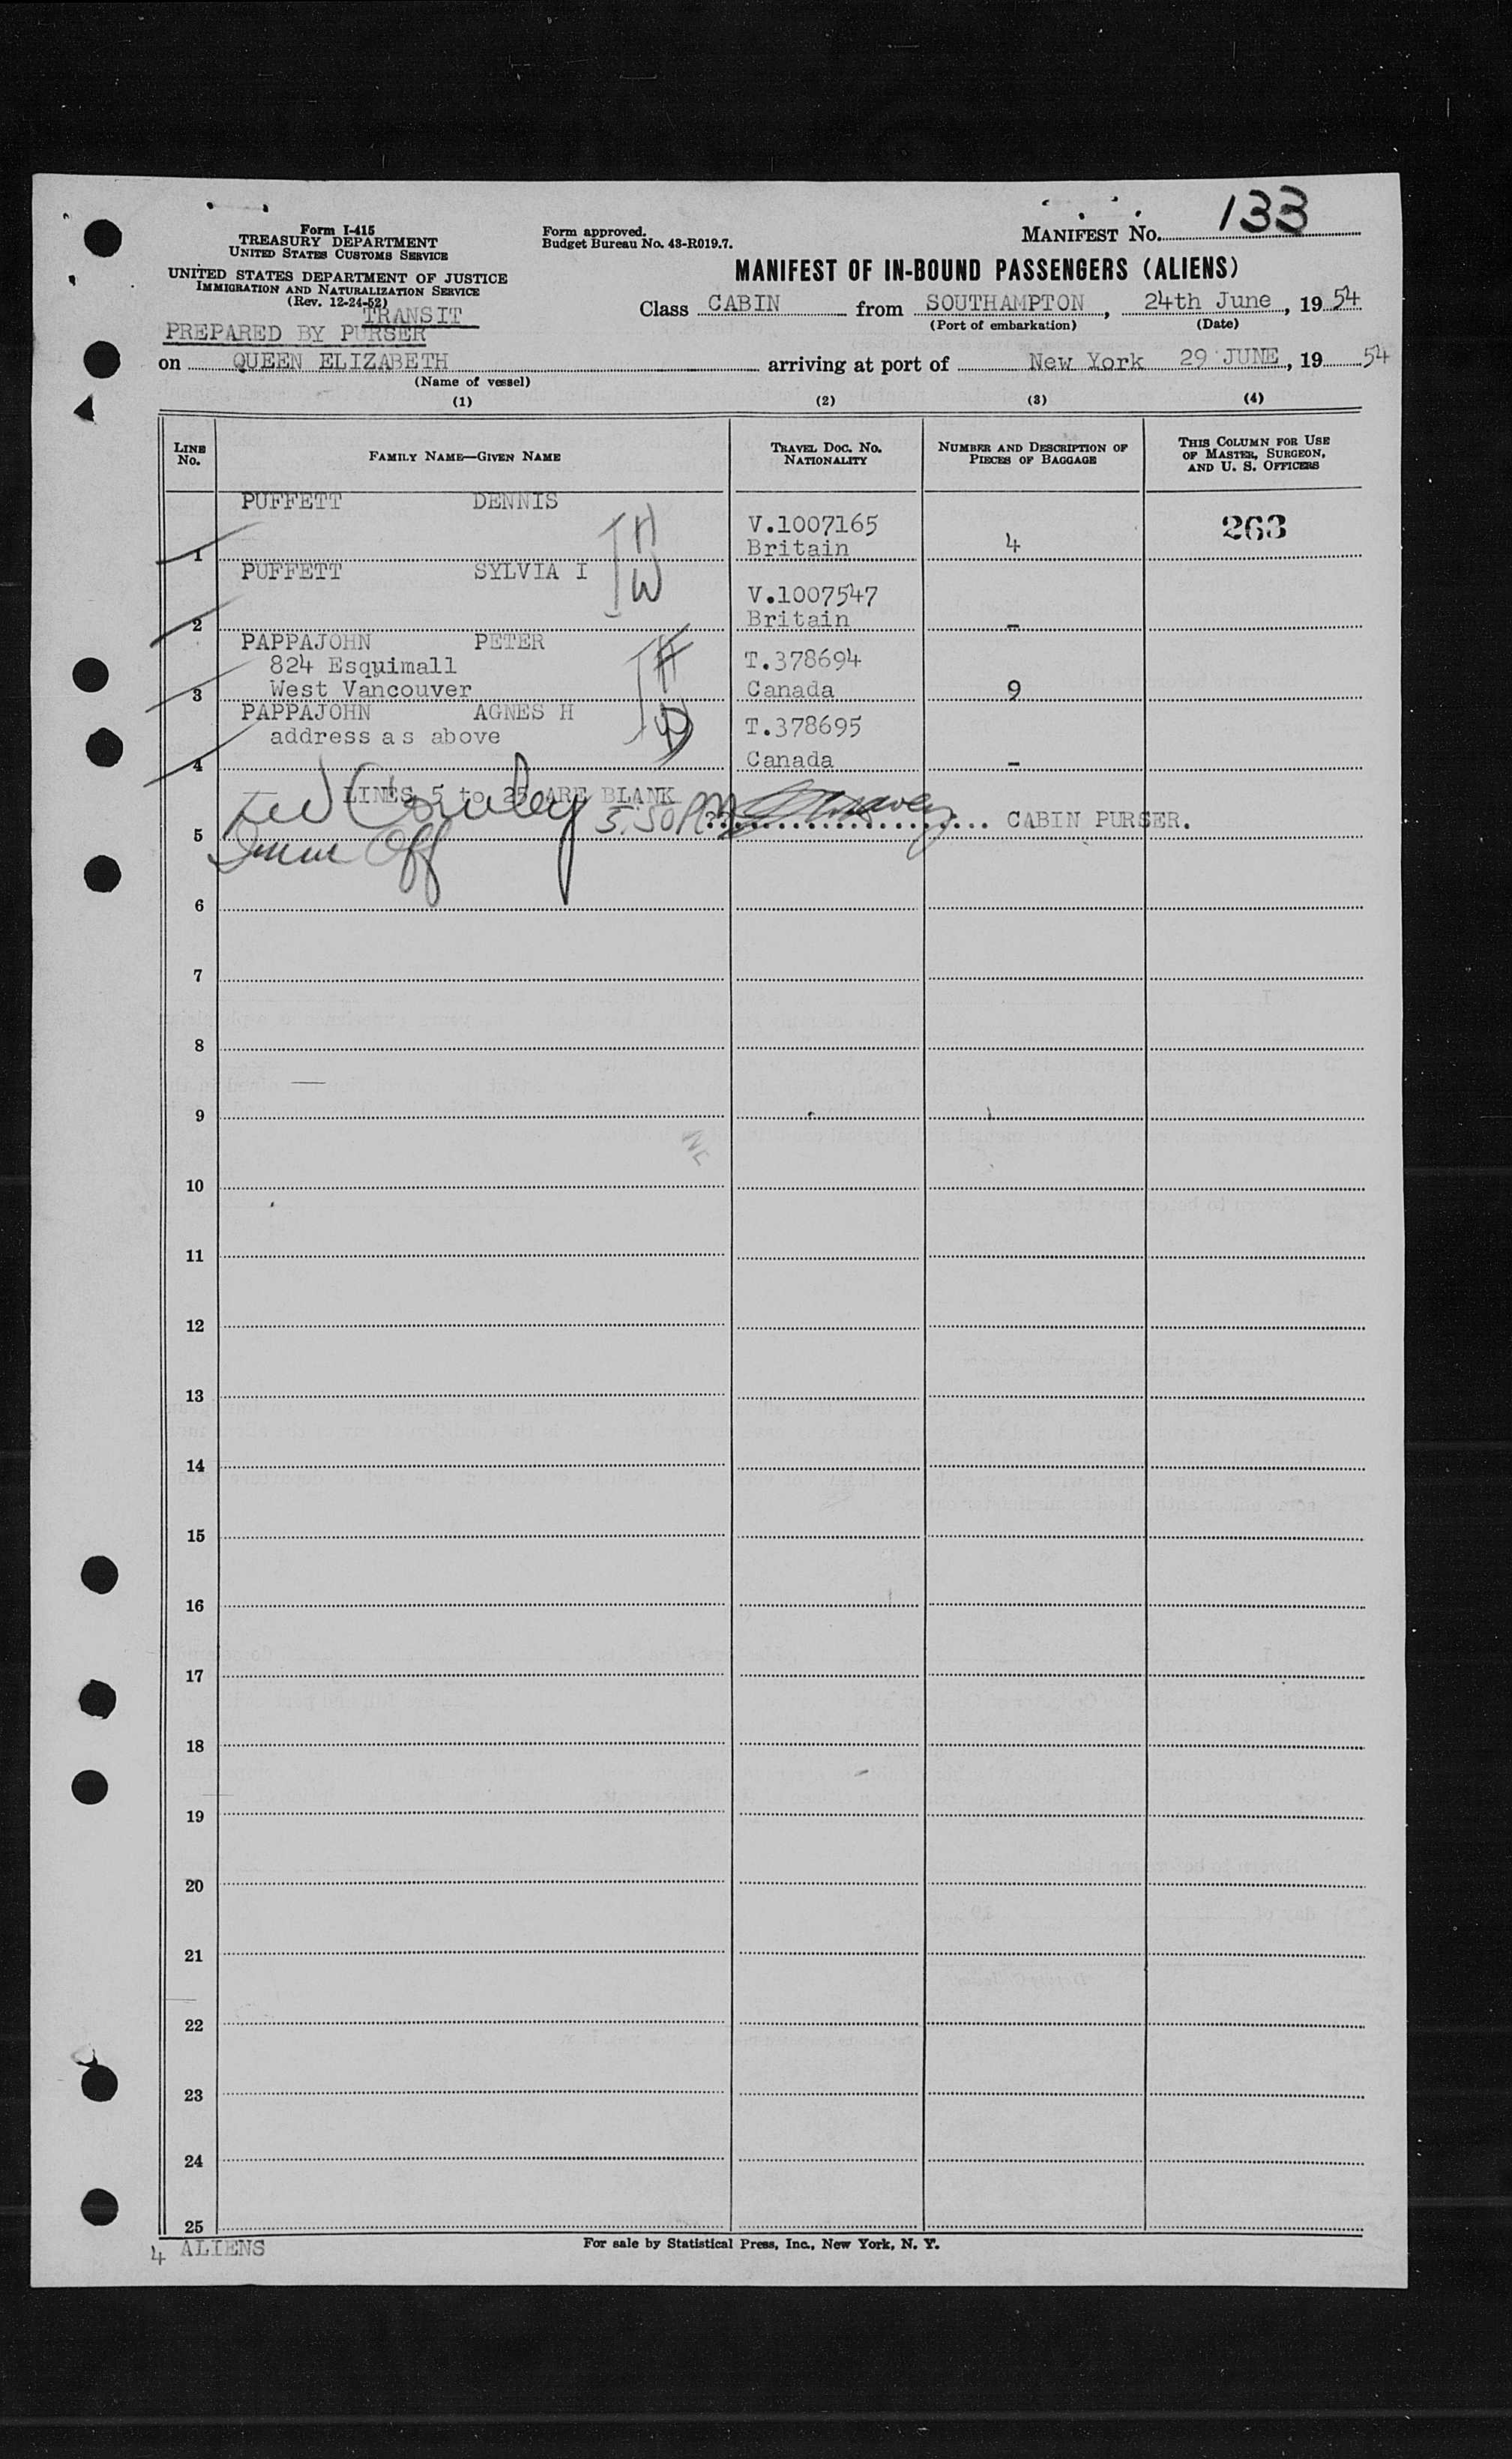 133
Form I-415
TREASURY DEPARTMENT
UNITED STATES CUSTOMS SERVICE
UNITED STATES DEPARTMENT OF JUSTICE
IMMIGRATION AND NATURALIZATION SERVICE
(Rev. 12-24-52)
Form approved.
Budget Bureau No. 43-R019.7.
MANIFEST NO.
MANIFEST OF IN-BOUND PASSENGERS (ALIENS)
TRANSIT
PREPARED BY PURSER
Class CABIN from SOUTHAMPTON, 24th June, 1954
(Port of embarkation) (Date)
on QUEEN ELIZABETH arriving at port of New York 29 JUNE, 19 54
(Name of vessel)
(1) (2) (3) (4)
LINE NO. FAMILY NAME—GIVEN NAME TRAVEL DOC. NO. NATIONALITY NUMBER AND DESCRIPTION OF PIECES OF BAGGAGE THIS COLUMN FOR USE OF MASTER, SURGEON, AND U. S. OFFICERS
PUFFETT DENNIS
H V.1007165 263
1 Britain 4
PUFFETT SYLVIA I
W V.1007547
2 Britain -
PAPPAJOHN PETER
824 Esquimall H T.378694
3 West Vancouver Canada 9
PAPPAJOHN AGNES H
address as above W T.378695
4 Canada -
LINES 5 to 25 ARE BLANK
5.50 PM CABIN PURSER.
5
Imm Off
6
7
8
9
10
11
12
13
14
15
16
17
18
19
20
21
22
23
24
25
4 ALIENS
For sale by Statistical Press, Inc., New York, N. Y.